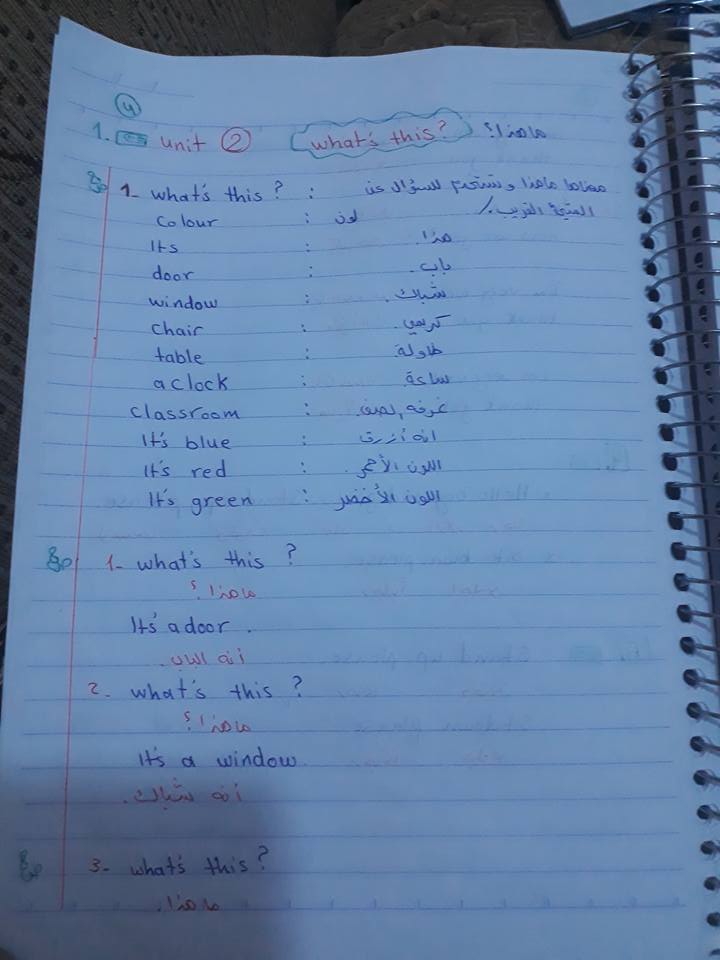 4
1. unit 2 what's this? ما هذا؟
1- what's this? : معناها ماهذا وتستخدم للسؤال عن
القريب.
colour : لون
Its : هذا.
door : باب.
window : شباك.
chair : كرسي.
table : طاولة.
a clock : ساعة.
classroom : غرفة الصف.
It's blue : انه أزرق
It's red : اللون الأحمر
It's green : اللون الأخضر
1- what's this?
ما هذا؟
It's a door.
أنه الباب.
2- what's this?
ما هذا؟
It's a window
أنه شباك.
3- what's this?
ما هذا.